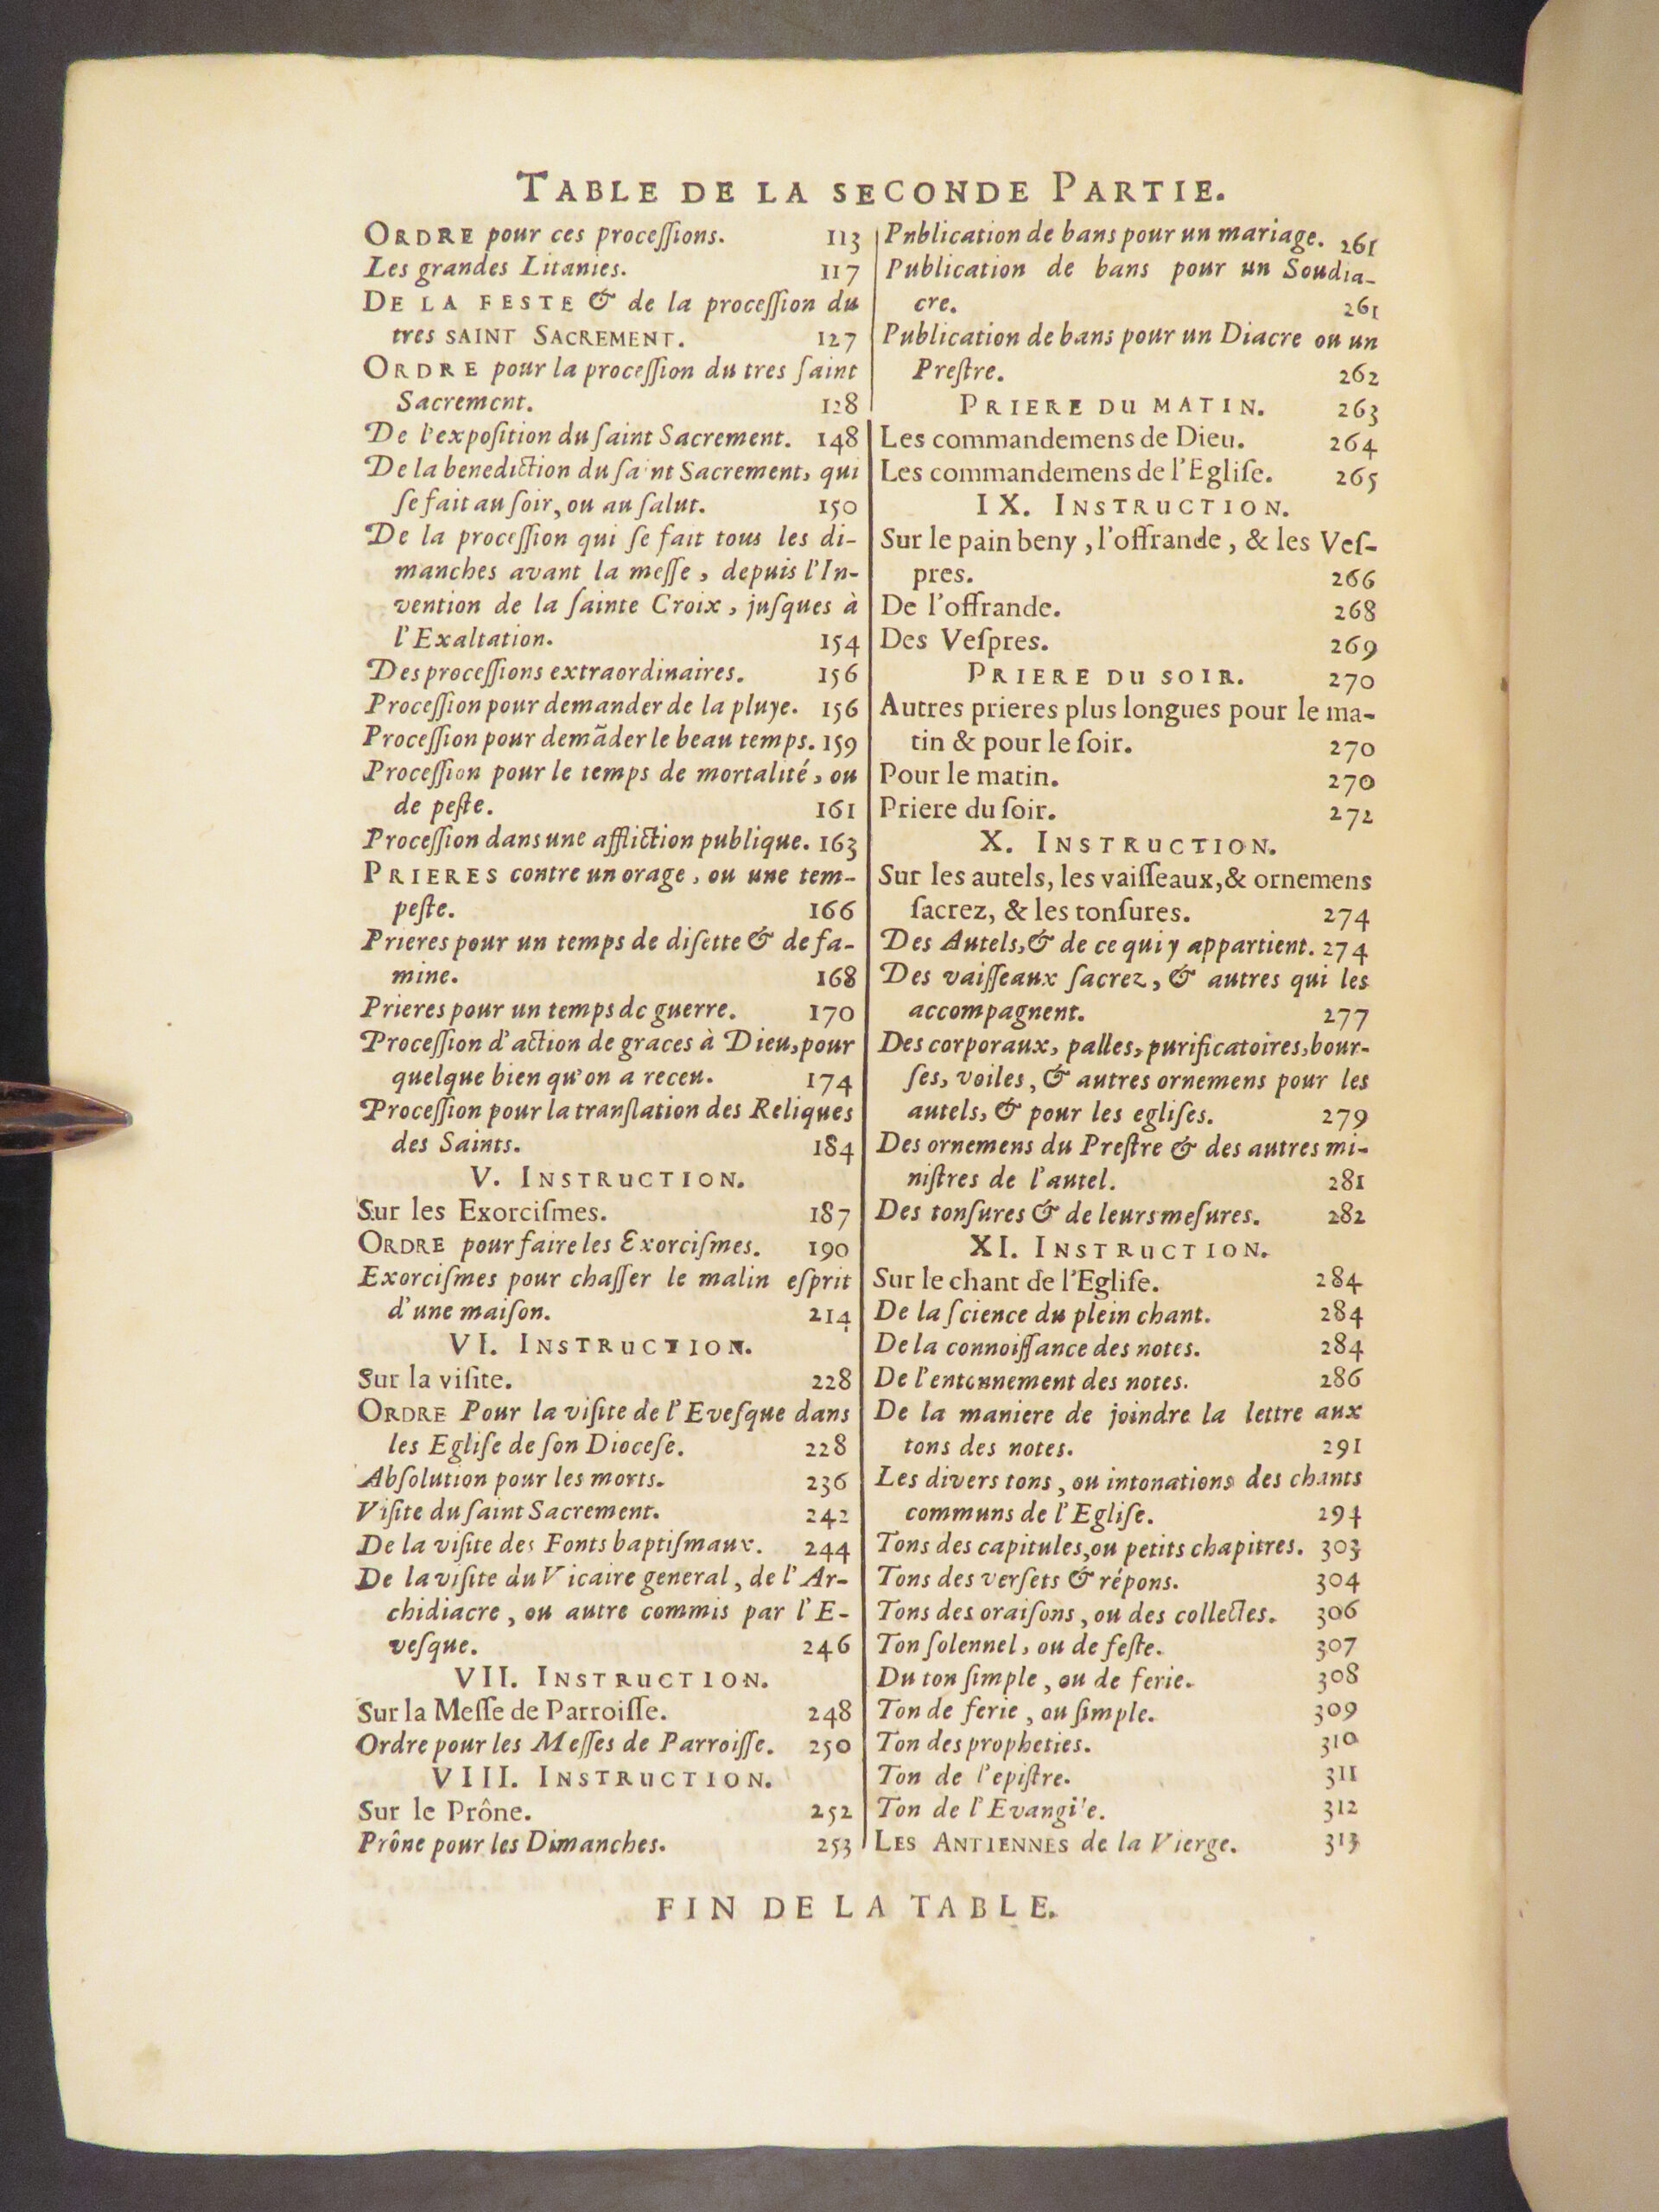 TABLE DE LA SECONDE PARTIE.
ORDRE pour ces proceſſions. 113
Les grandes Litanies. 117
DE LA FESTE & de la proceſſion du
tres SAINT SACREMENT. 127
ORDRE pour la proceſſion du tres ſaint
Sacrement. 128
De l'expoſition du ſaint Sacrement. 148
De la benediction du ſaint Sacrement, qui
ſe fait au ſoir, ou au ſalut. 150
De la proceſſion qui ſe fait tous les di-
manches avant la meſſe, depuis l'In-
vention de la ſainte Croix, juſques à
l'Exaltation. 154
Des proceſſions extraordinaires. 156
Proceſſion pour demander de la pluye. 156
Proceſſion pour demãder le beau temps. 159
Proceſſion pour le temps de mortalité, ou
de peſte. 161
Proceſſion dans une affliction publique. 163
PRIERES contre un orage, ou une tem-
peſte. 166
Prieres pour un temps de diſette & de fa-
mine. 168
Prieres pour un temps de guerre. 170
Proceſſion d'action de graces à Dieu, pour
quelque bien qu'on a receu. 174
Proceſſion pour la tranſlation des Reliques
des Saints. 184
V. INSTRUCTION.
Sur les Exorciſmes. 187
ORDRE pour faire les Exorciſmes. 190
Exorciſmes pour chaſſer le malin eſprit
d'une maiſon. 214
VI. INSTRUCTION.
Sur la viſite. 228
ORDRE Pour la viſite de l'Eveſque dans
les Egliſe de ſon Dioceſe. 228
Abſolution pour les morts. 236
Viſite du ſaint Sacrement. 242
De la viſite des Fonts baptiſmaux. 244
De la viſite du Vicaire general, de l'Ar-
chidiacre, ou autre commis par l'E-
veſque. 246
VII. INSTRUCTION.
Sur la Meſſe de Parroiſſe. 248
Ordre pour les Meſſes de Parroiſſe. 250
VIII. INSTRUCTION.
Sur le Prône. 252
Prône pour les Dimanches. 253
Pnblication de bans pour un mariage. 261
Publication de bans pour un Soudia-
cre. 261
Publication de bans pour un Diacre ou un
Preſtre. 262
PRIERE DU MATIN. 263
Les commandemens de Dieu. 264
Les commandemens de l'Egliſe. 265
IX. INSTRUCTION.
Sur le pain beny, l'offrande, & les Veſ-
pres. 266
De l'offrande. 268
Des Veſpres. 269
PRIERE DU SOIR. 270
Autres prieres plus longues pour le ma-
tin & pour le ſoir. 270
Pour le matin. 270
Priere du ſoir. 272
X. INSTRUCTION.
Sur les autels, les vaiſſeaux, & ornemens
ſacrez, & les tonſures. 274
Des Autels, & de ce qui y appartient. 274
Des vaiſſeaux ſacrez, & autres qui les
accompagnent. 277
Des corporaux, palles, purificatoires, bour-
ſes, voiles, & autres ornemens pour les
autels, & pour les egliſes. 279
Des ornemens du Preſtre & des autres mi-
niſtres de l'autel. 281
Des tonſures & de leurs meſures. 282
XI. INSTRUCTION.
Sur le chant de l'Egliſe. 284
De la ſcience du plein chant. 284
De la connoiſſance des notes. 284
De l'entonnement des notes. 286
De la maniere de joindre la lettre aux
tons des notes. 291
Les divers tons, ou intonations des chants
communs de l'Egliſe. 294
Tons des capitules, ou petits chapitres. 303
Tons des verſets & répons. 304
Tons des oraiſons, ou des collectes. 306
Ton ſolennel, ou de feſte. 307
Du ton ſimple, ou de ferie. 308
Ton de ferie, ou ſimple. 309
Ton des propheties. 310
Ton de l'epiſtre. 311
Ton de l'Evangile. 312
LES ANTIENNES de la Vierge. 313
FIN DE LA TABLE.